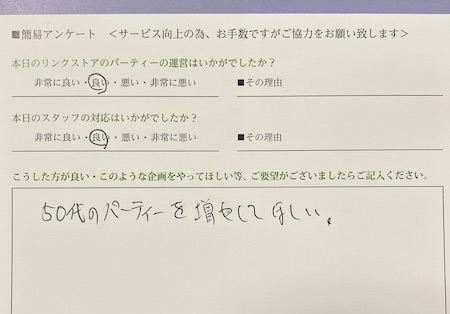 ■簡易アンケート ＜サービス向上の為、お手数ですがご協力をお願い致します＞
本日のリンクストアのパーティーの運営はいかがでしたか？
非常に良い・良い・悪い・非常に悪い ■その理由
本日のスタッフの対応はいかがでしたか？
非常に良い・良い・悪い・非常に悪い ■その理由
こうした方が良い・このような企画をやってほしい等、ご要望がございましたらご記入ください。
50代のパーティーを増やしてほしい。